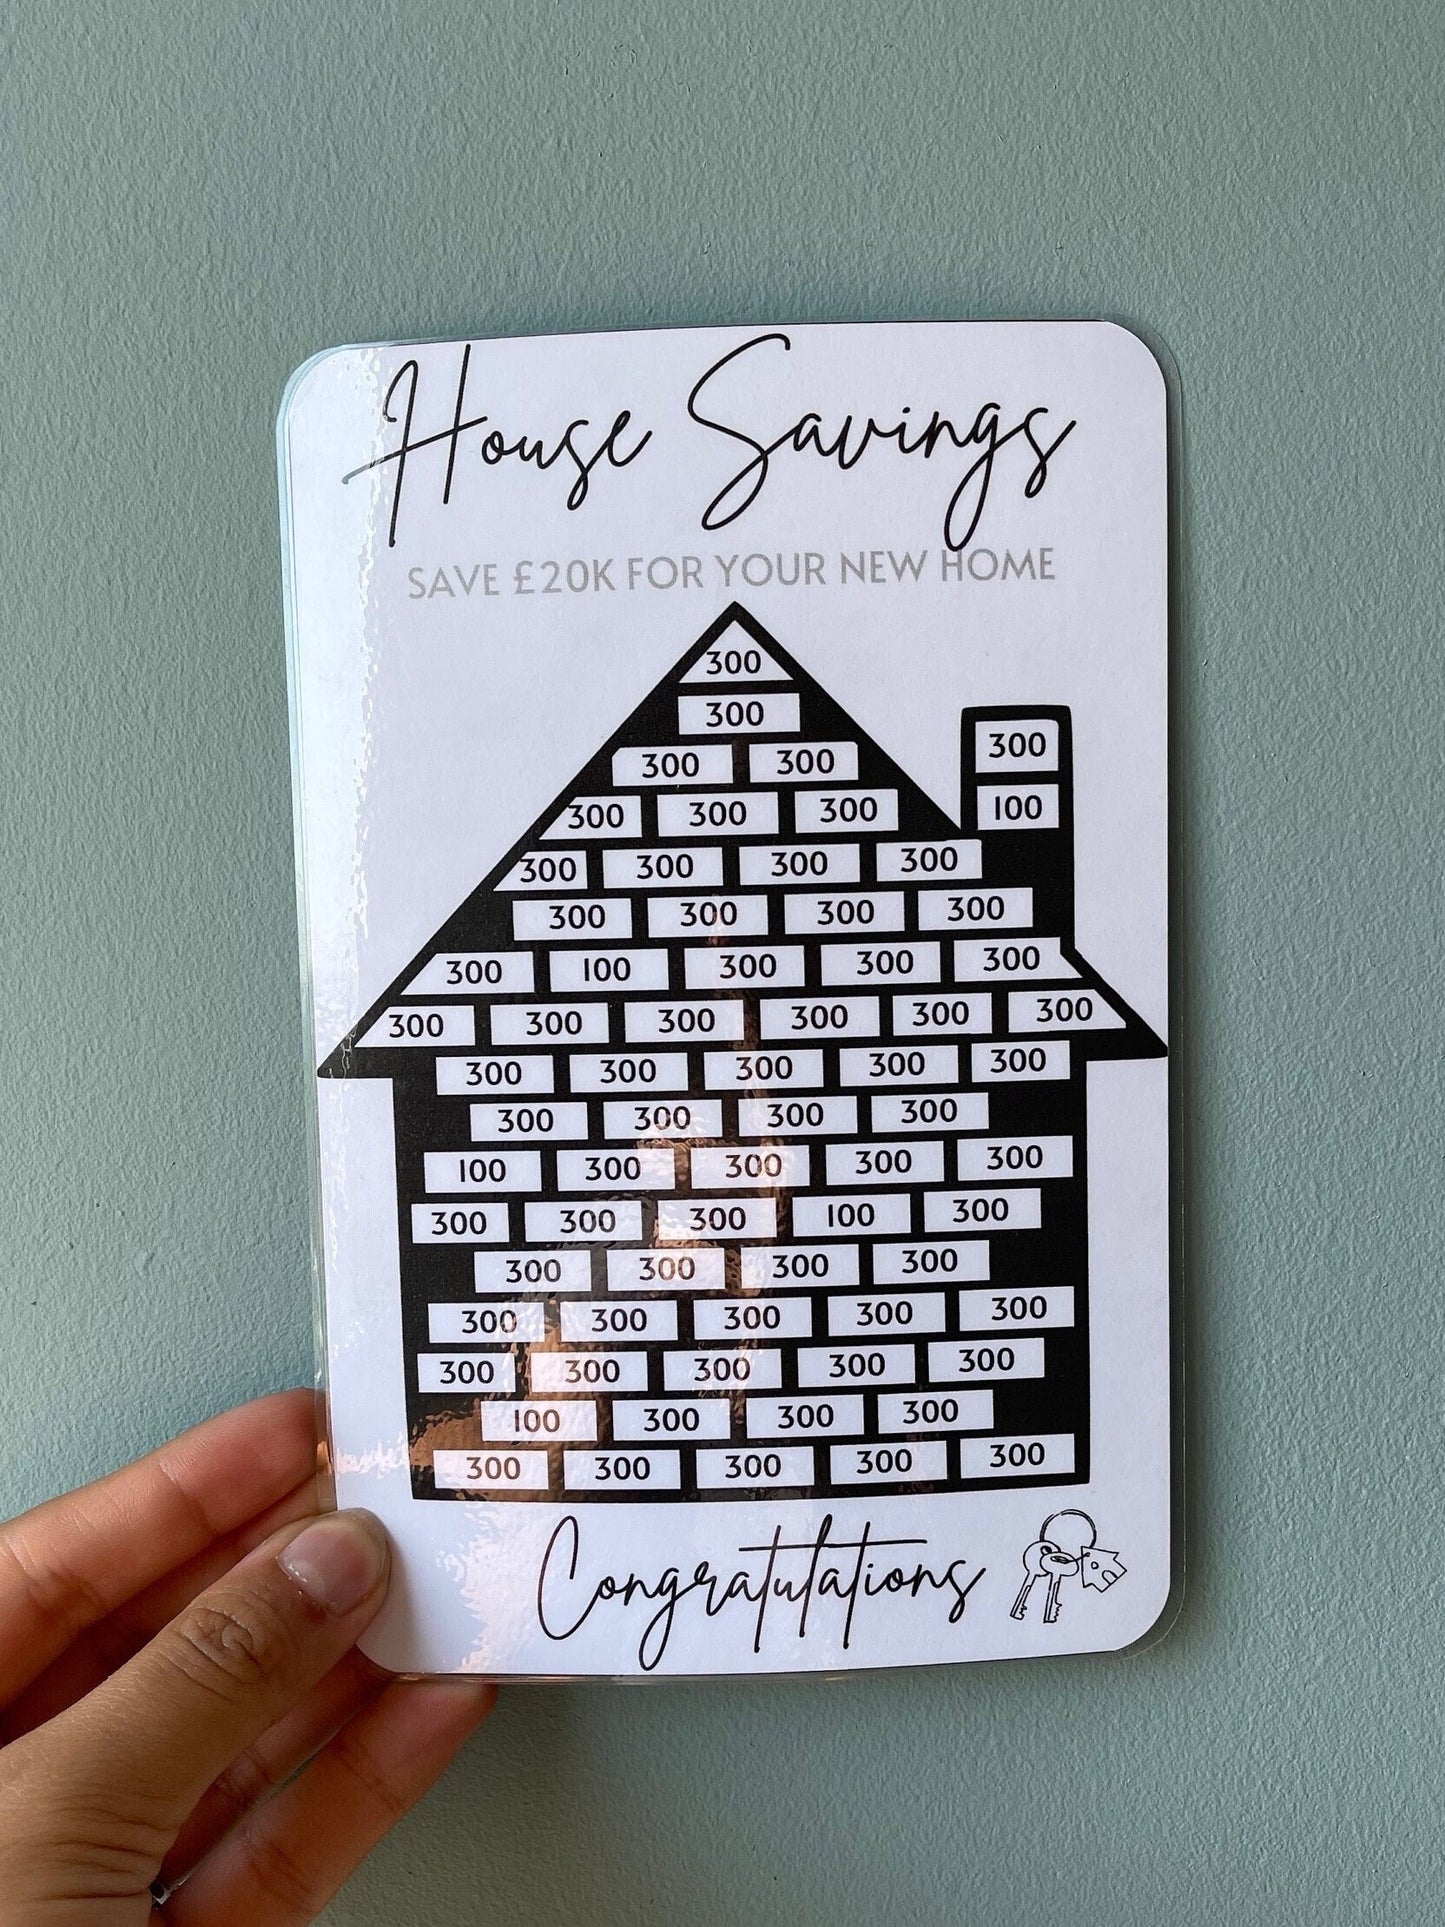 House Savings
SAVE £20K FOR YOUR NEW HOME
300
300
300
300 300
100
300 300 300
300 300 300 300
300 300 300 300
300 100 300 300 300
300 300 300 300 300 300
300 300 300 300 300
300 300 300 300
100 300 300 300 300
300 300 300 100 300
300 300 300 300
300 300 300 300 300
300 300 300 300 300
100 300 300 300
300 300 300 300 300
Congratulations